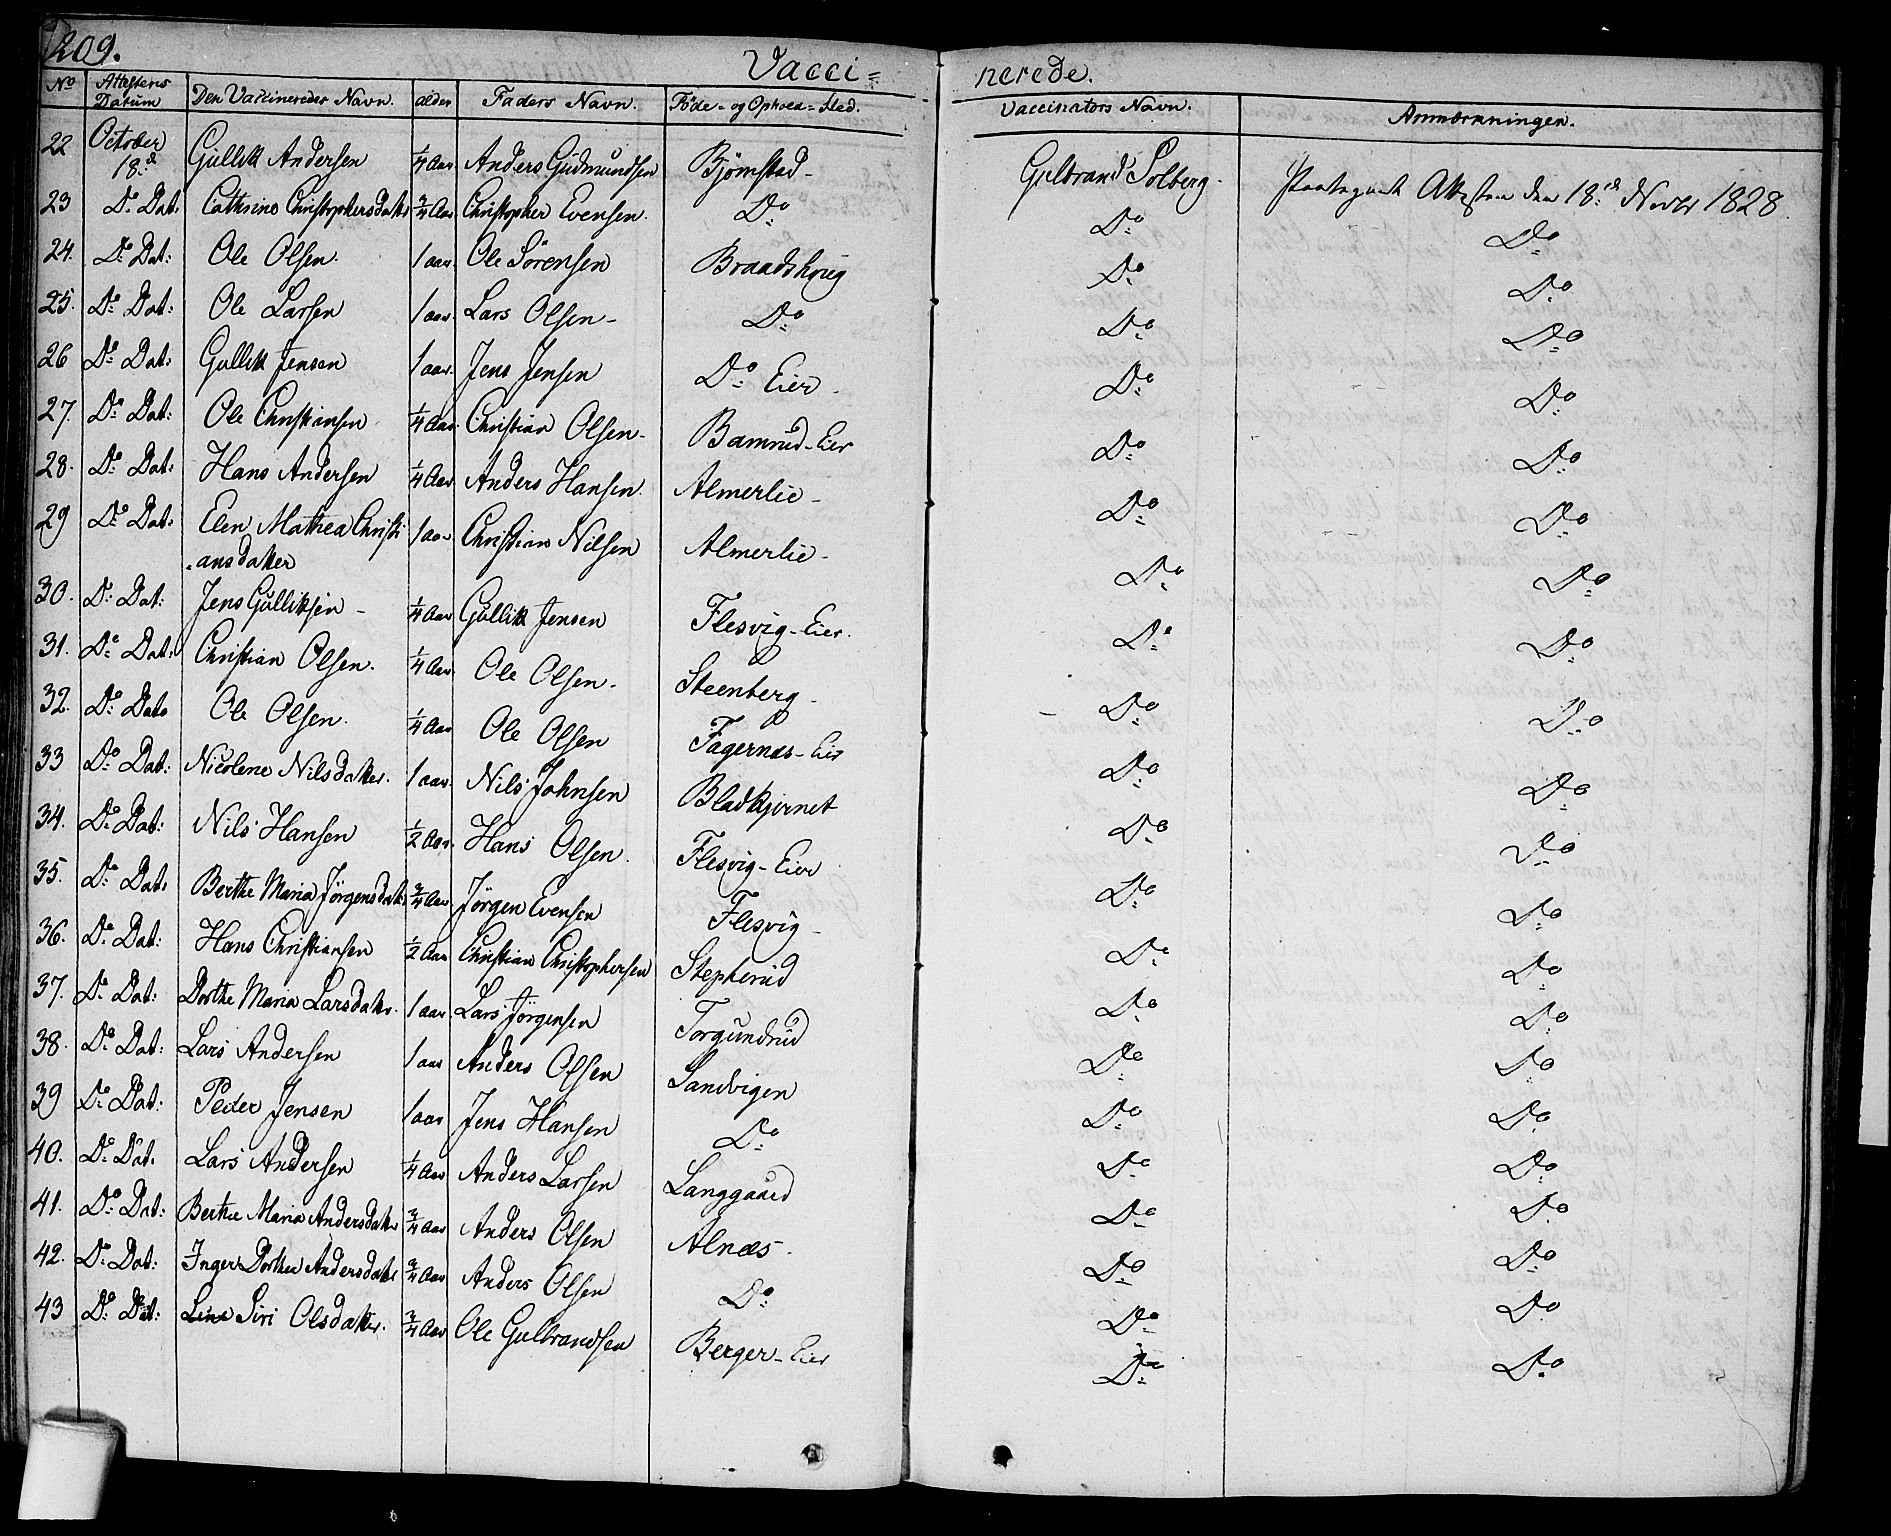 209.
Vaccinerede.
No Attestens Datum Den Vaccineredes Navn. alder Faders Navn. Föde- og Opholds-Sted. Vaccinators Navn. Anmærkningen.
22 October 18.d Gullik Andersen 1/4 Aar Anders Gudmundsen Bjørnstad- Gulbrand Solberg. Attesten den 18.d Novbr 1828.
23 Do Dat: Cathrine Christophersdatter 3/4 Aar Christopher Evensen. Do Do Do
24. Do Dat: Ole Olsen. 1 aar. Ole Sörensen Braadshoug Do Do
25. Do Dat: Ole Larsen 1 aar. Lars Olsen- Do Do Do
26 Do Dat: Gullik Jensen 1 aar. Jens Jensen Do Eier- Do Do
27. Do Dat: Ole Christiansen 1/4 Aar. Christian Olsen- Bamrud-Eier Do Do
28. Do Dat: Hans Andersen 1/4 Aar Anders Hansen. Almerlie- Do Do
29 Do Dat: Elen Mathea Christi 1 aar Christian Nilsen Almerlie- Do Do
ansdatter
30. Do Dat: Jens Gulliksen- 1/4 Aar Gullik Jensen Flesvig-Eier. Do Do
31. Do Dat: Christian Olsen. 1/4 Aar Ole Olsen- Steenberg- Do Do
32. Do Dato Ole Olsen. 1/4 Aar Ole Olsen Fagernæs-Eier Do Do
33 Do Dat: Nicolene Nilsdatter. 1 aar. Nils Johnsen Bladkjernet Do Do
34. Do Dat: Nils Hansen 1/2 Aar. Hans Olsen. Flesvig-Eier Do Do
35. Do Dat: Berthe Maria Jörgensdatter 3/4 Aar Jörgen Evensen Flesvig- Do Do
36. Do Dat: Hans Christiansen 1/2 Aar Christian Christophersen Stepherud Do Do
37. Do Dat: Dorthe Maria Larsdatter. 1 aar Lars Jörgensen Torgundrud Do Do
38. Do Dat: Lars Andersen 1 aar Anders Olsen Sandvigen Do Do
39 Do Dat: Peder Jensen 1 aar Jens Hansen Do Do Do
40. Do Dat. Lars Andersen 1/4 Aar Anders Larsen Langgaard Do Do
41. Do Dat: Berthe Maria Andersdatter 3/4 Aar Anders Olsen Alnæs. Do Do
42. Do Dat: Inger Dorthea Andersdatter 3/4 Aar Anders Olsen Do Do Do
43 Do Dat: Line Siri Olsdatter. 3/4 Aar Ole Gulbrandsen Berger-Eier Do Do
Do